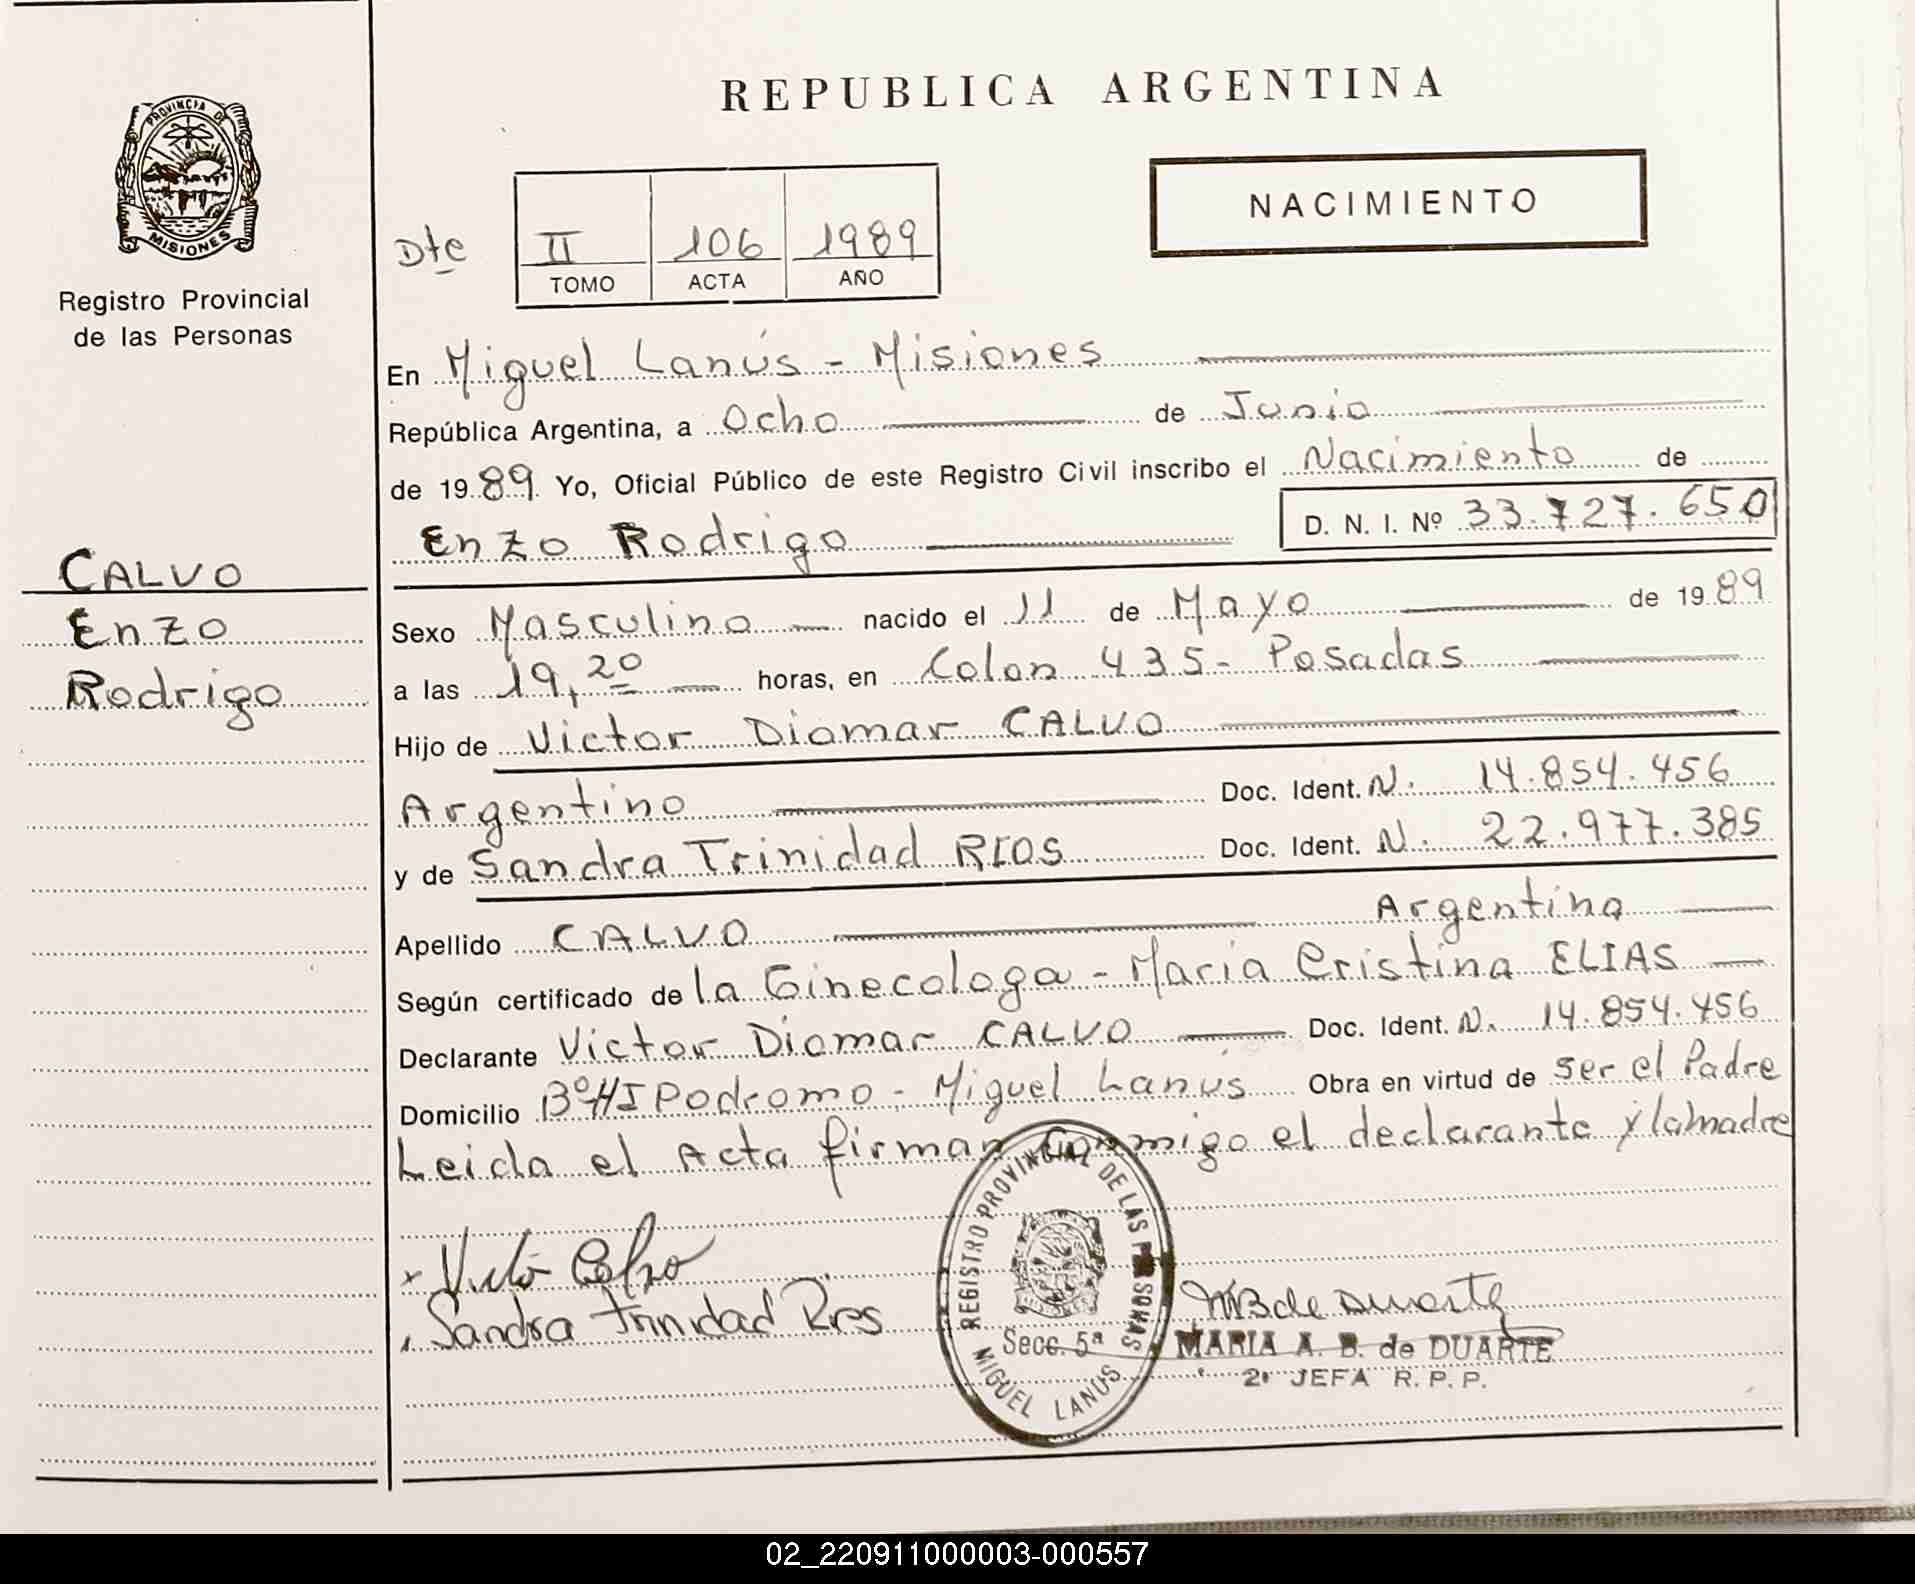 REPUBLICA ARGENTINA
PROVINCIA DE MISIONES
Registro Provincial
de las Personas
NACIMIENTO
Dto II 106 1989
TOMO ACTA AÑO
En Miguel Lanús - Misiones
República Argentina, a Ocho de Junio
de 1989 Yo, Oficial Público de este Registro Civil inscribo el Nacimiento de
Enzo Rodrigo D. N. I. Nº 33.727.650
CALVO
Enzo
Rodrigo
Sexo Masculino nacido el 11 de Mayo de 1989
a las 19,20 horas, en Colon 435 - Posadas
Hijo de Victor Diomar CALVO
Argentino Doc. Ident. N. 14.854.456
y de Sandra Trinidad RIOS Doc. Ident. N. 22.977.385
Apellido CALVO Argentina
Según certificado de la Ginecologa - Maria Cristina ELIAS
Declarante Victor Diomar CALVO Doc. Ident. N. 14.854.456
Domicilio Bº HIPodromo - Miguel Lanús Obra en virtud de ser el Padre
Leida el Acta firman conmigo el declarante y la madre
Sandra Trinidad Rios
REGISTRO PROVINCIAL DE LAS PERSONAS
Secc. 5ª
MIGUEL LANUS
MB de Duarte
MARIA A. B. de DUARTE
2ª JEFA R. P. P.
02_220911000003-000557